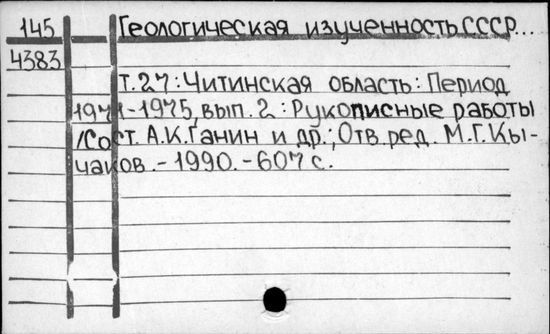 145 Геологическая изученность СССР...
4383
Т.27: Читинская область: Период
1971-1975, вып. 2: Рукописные работы
/Сост. А.К.Ганин и др.; Отв. ред. М.Г.Кы-
чаков. - 1990. - 607 с.